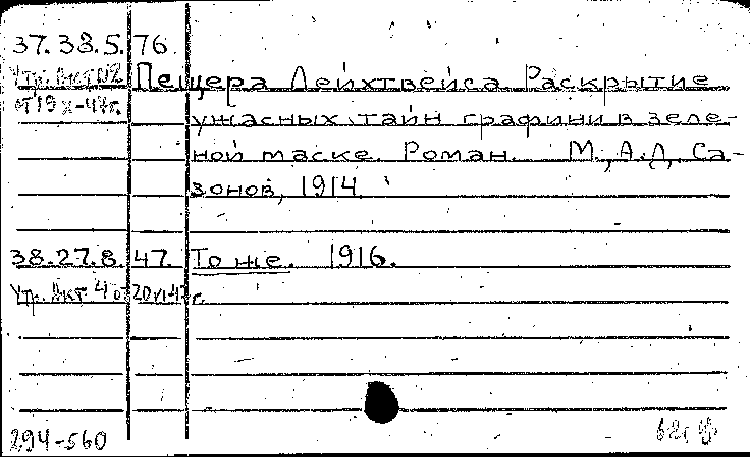 37.38.5. 76
Утр. Акт №2 Пещера Лейхтвейса Раскрытие
от 19 X-47г. ужасных тайн графини в зеле-
ной маске. Роман. М., А.Д. Са-
зонов, 1914
38.27.8. 47. То же. 1916.
Утр. Акт. 4 от 20 VI-47 г.
294-560